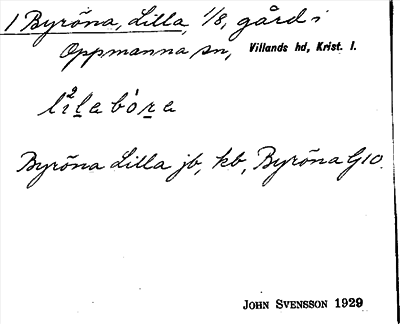 1 Byröna, Lilla, 1/8, gård i
Oppmanna sn, Villands hd, Krist. l.
lı̊²lạ bó̱rạ
Byröna Lilla jb, kb, Byröna G10.
JOHN SVENSSON 1929